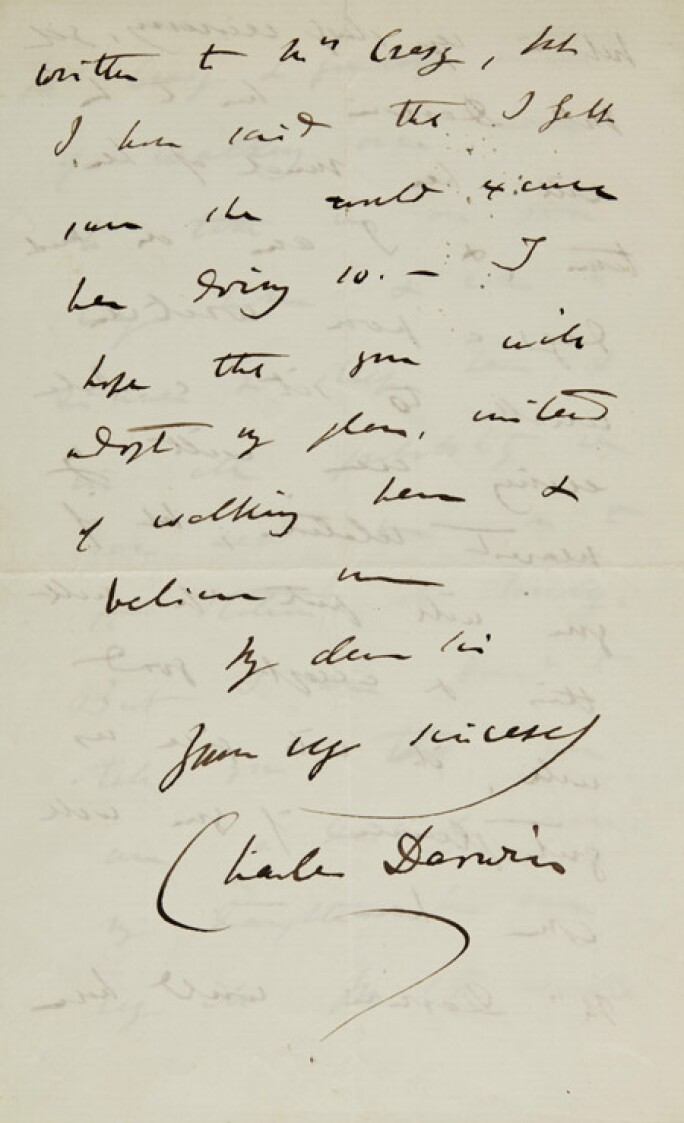 written to Mrs Cresy, but
I have said that I felt
sure she would excuse
her doing so. — I
hope that you will
adopt my plan, instead
of walking here &
believe me
My dear Sir
Yours very sincerely
Charles Darwin